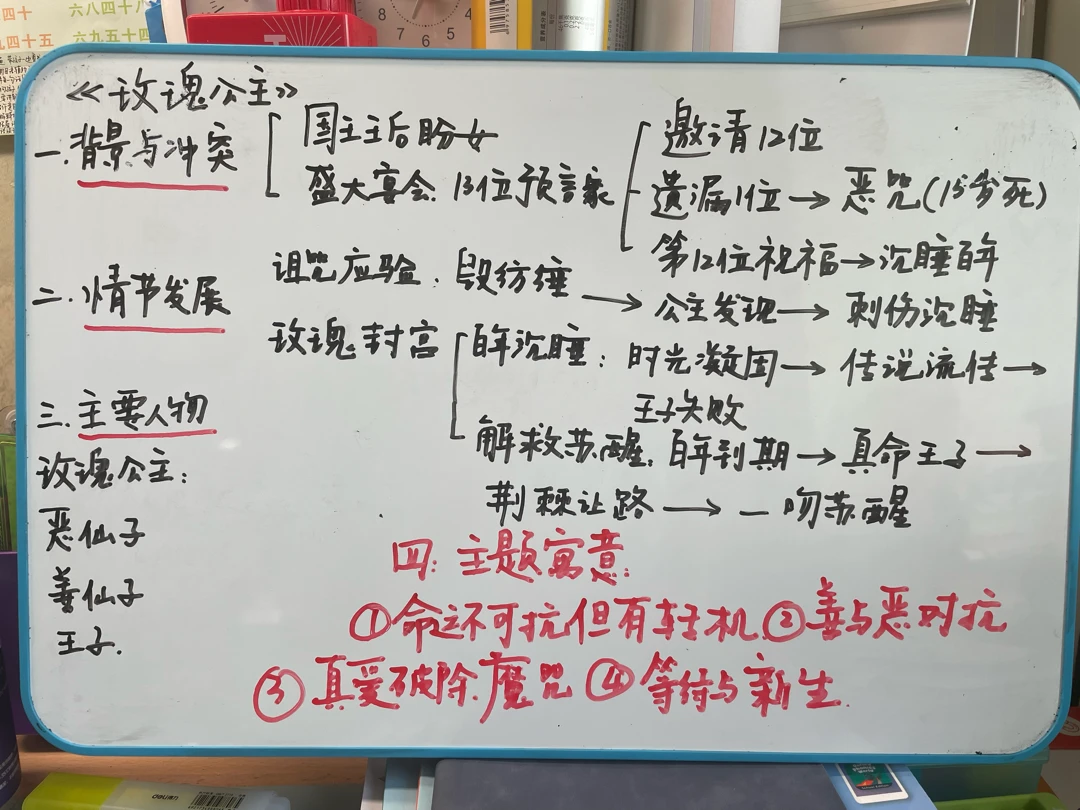 四十
六八四十八
九四十五
六九五十四
8
7
6
5
4
《玫瑰公主》
一.背景与冲突
国王王后盼女
盛大宴会.13位预言家
邀请12位
遗漏1位→恶咒(15岁死)
第12位祝福→沉睡百年
二.情节发展
诅咒应验:毁纺锤→公主发现→刺伤沉睡
玫瑰封宫
百年沉睡:时光凝固→传说流传→
王子失败
解救苏醒.百年到期→真命王子→
荆棘让路→一吻苏醒
三.主要人物
玫瑰公主:
恶仙子
善仙子
王子.
四:主题寓意:
①命运不可抗但有转机②善与恶对抗
③真爱破除魔咒④等待与新生.
deli得力